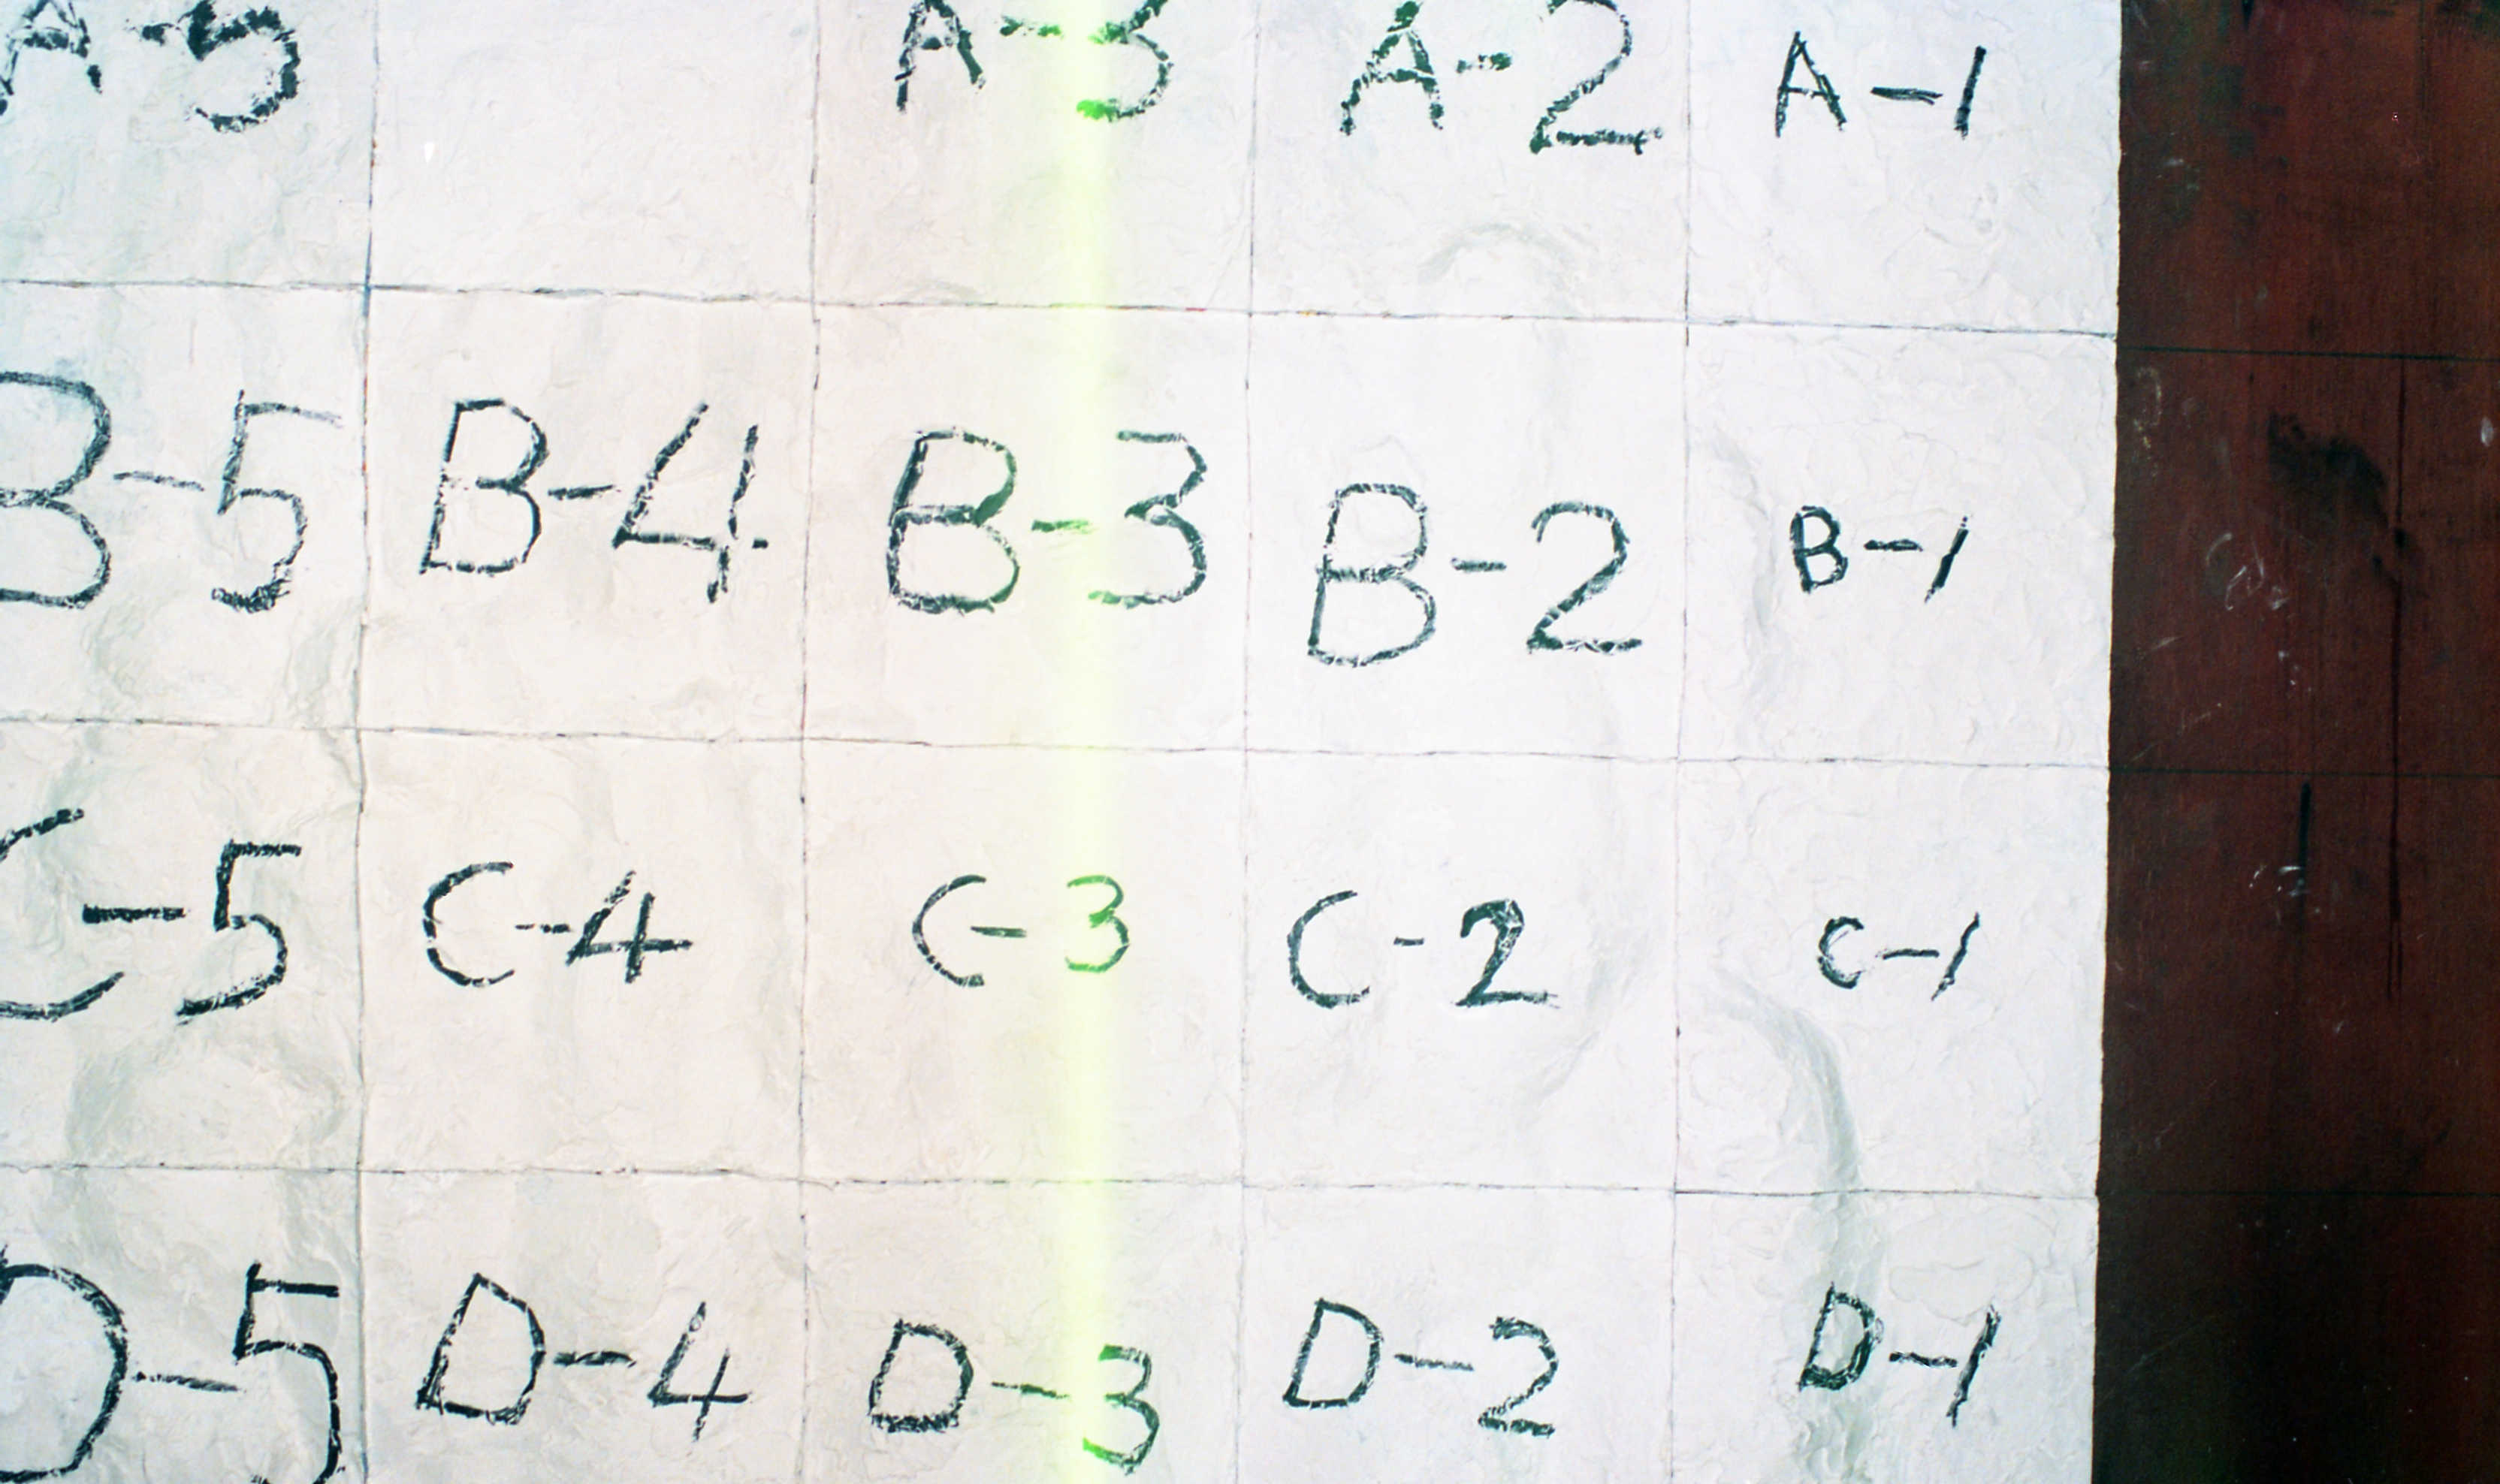 A-5 A-3 A-2 A-1
B-5 B-4 B-3 B-2 B-1
C-5 C-4 C-3 C-2 C-1
D-5 D-4 D-3 D-2 D-1